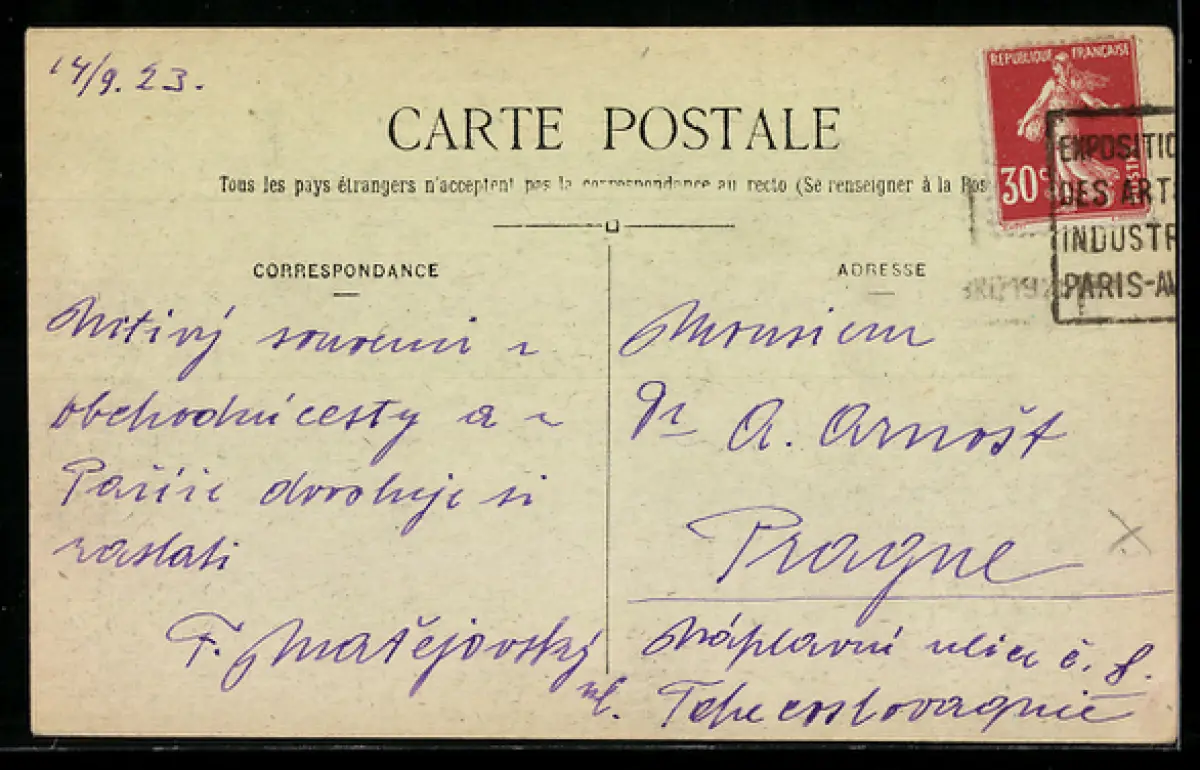 14/9. 23.
REPUBLIQUE FRANÇAISE
30c
POSTES
CARTE POSTALE
Tous les pays étrangers n'acceptent pas la correspondance au recto (Se renseigner à la Pos
EXPOSITIO
DES ART
INDUSTR
PARIS-AV
CORRESPONDANCE
Uctivý souvenir z
obchodní cesty a z
Paříže dovoluje si
zaslati
F. Matějovský
ml.
ADRESSE
Monsieur
Dr A. Arnošt
Prague
Náplavní ulice č. 8.
Tchecoslovaquie